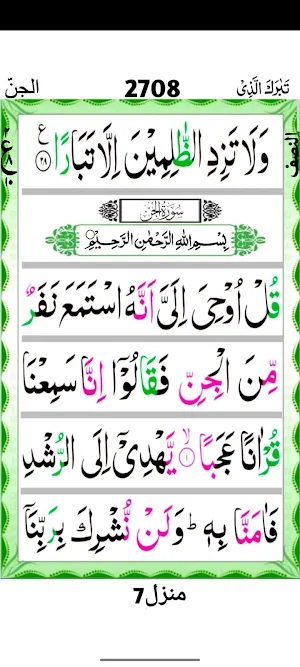 الجنّ 2708 تَبٰرَكَ الَّذِىْ
وَلَا تَزِدِ الظّٰلِمِيْنَ اِلَّا تَبَارًا ع ۲۸
النصف
سُوْرَةُ الْجِنّ
بِسْمِ اللهِ الرَّحْمٰنِ الرَّحِيْمِ
قُلْ اُوْحِىَ اِلَىَّ اَنَّهُ اسْتَمَعَ نَفَرٌ
مِّنَ الْجِنِّ فَقَالُوْٓا اِنَّا سَمِعْنَا
قُرْاٰنًا عَجَبًا ۙ۱ يَّهْدِىْٓ اِلَى الرُّشْدِ
فَاٰمَنَّا بِهٖ ؕ وَلَنْ نُّشْرِكَ بِرَبِّنَآ
منزل 7